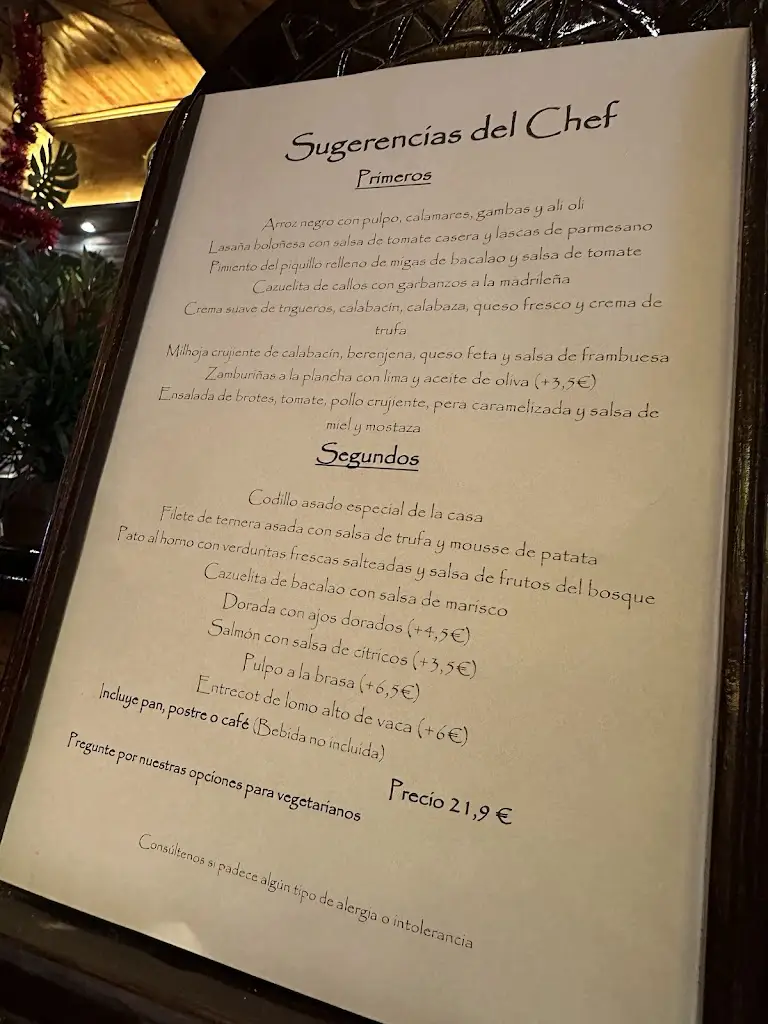 Sugerencias del Chef
Primeros
Arroz negro con pulpo, calamares, gambas y ali oli
Lasaña boloñesa con salsa de tomate casera y lascas de parmesano
Pimiento del piquillo relleno de migas de bacalao y salsa de tomate
Cazuelita de callos con garbanzos a la madrileña
Crema suave de trigueros, calabacín, calabaza, queso fresco y crema de
trufa
Milhoja crujiente de calabacín, berenjena, queso feta y salsa de frambuesa
Zamburiñas a la plancha con lima y aceite de oliva (+3,5€)
Ensalada de brotes, tomate, pollo crujiente, pera caramelizada y salsa de
miel y mostaza
Segundos
Codillo asado especial de la casa
Filete de ternera asada con salsa de trufa y mousse de patata
Pato al horno con verduritas frescas salteadas y salsa de frutos del bosque
Cazuelita de bacalao con salsa de marisco
Dorada con ajos dorados (+4,5€)
Salmón con salsa de cítricos (+3,5€)
Pulpo a la brasa (+6,5€)
Entrecot de lomo alto de vaca (+6€)
Incluye pan, postre o café (Bebida no incluida)
Precio 21,9 €
Pregunte por nuestras opciones para vegetarianos
Consúltenos si padece algún tipo de alergia o intolerancia